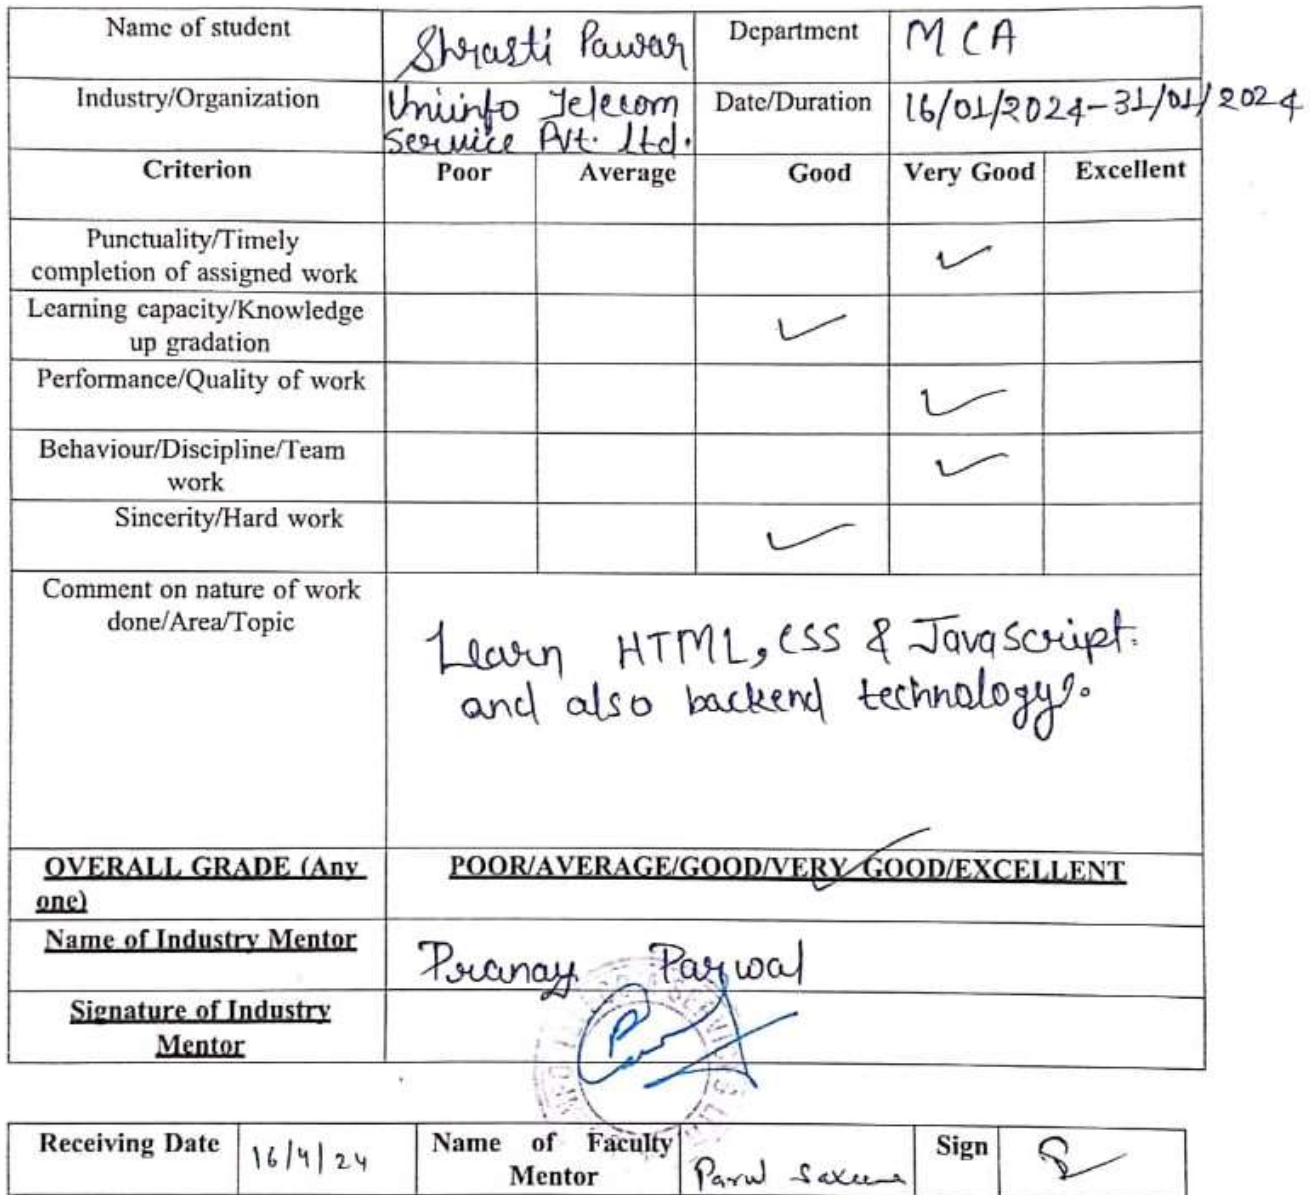 Name of student Shrasti Pawar Department MCA
Industry/Organization Uniinfo Telecom Date/Duration 16/01/2024-31/01/2024
Service Pvt. Ltd.
Criterion Poor Average Good Very Good Excellent
Punctuality/Timely
completion of assigned work ✓
Learning capacity/Knowledge
up gradation ✓
Performance/Quality of work ✓
Behaviour/Discipline/Team
work ✓
Sincerity/Hard work ✓
Comment on nature of work
done/Area/Topic
Learn HTML, CSS & Javascript.
and also backend technology.
OVERALL GRADE (Any
one)
POOR/AVERAGE/GOOD/VERY GOOD/EXCELLENT
Name of Industry Mentor Pranay Parwal
Signature of Industry
Mentor
Receiving Date 16/4/24 Name of Faculty
Mentor Parul Saxena Sign